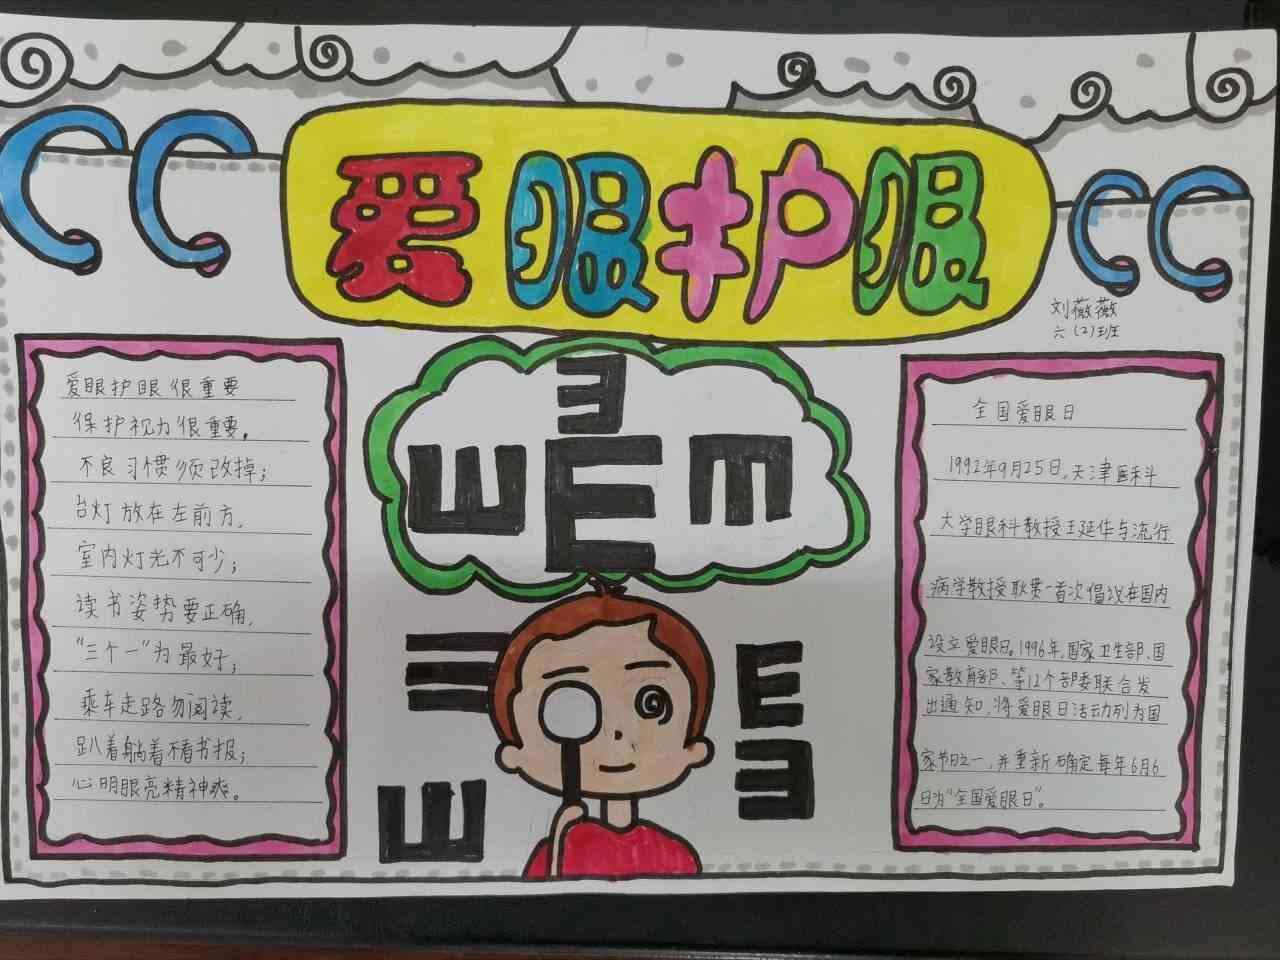 爱眼护眼
刘薇薇
六(2)班
爱眼护眼很重要
保护视力很重要,
不良习惯须改掉;
台灯放在左前方,
室内灯光不可少;
读书姿势要正确,
“三个一”为最好;
乘车走路勿阅读,
趴着躺着不看书报;
心明眼亮精神爽。
E
E E E
全国爱眼日
1992年9月25日,天津医科
大学眼科教授王延华与流行
病学教授耿贯一首次倡议在国内
设立爱眼日。1996年,国家卫生部、国
家教育部、等12个部委联合发
出通知,将爱眼日活动列为国
家节日之一,并重新确定每年6月6
日为“全国爱眼日”。
E E
E E